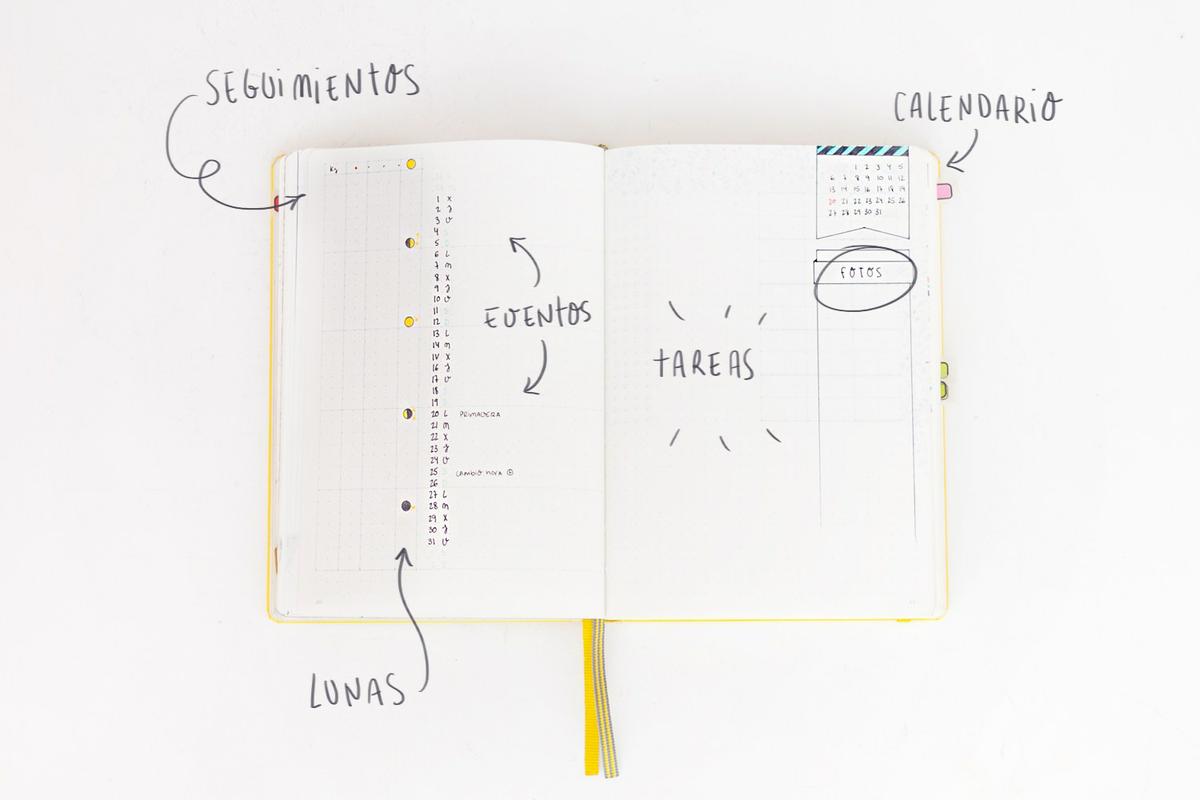 SEGUiMiENtOS
CALENDARiO
Kg
1 X
2 J
3 V
4
5
6 L
7 m
8 X
9 J
10 V
11
12
13 L
14 m
15 X
16 J
17 V
18
19
20 L PRiMAVERA
21 m
22 X
23 J
24 V
25 CAMBiO HORA
26
27 L
28 m
29 X
30 J
31 V
EVENtOS
LUNAS
tAREAS
1 2 3 4 5
6 7 8 9 10 11 12
13 14 15 16 17 18 19
20 21 22 23 24 25 26
27 28 29 30 31
FOtOS